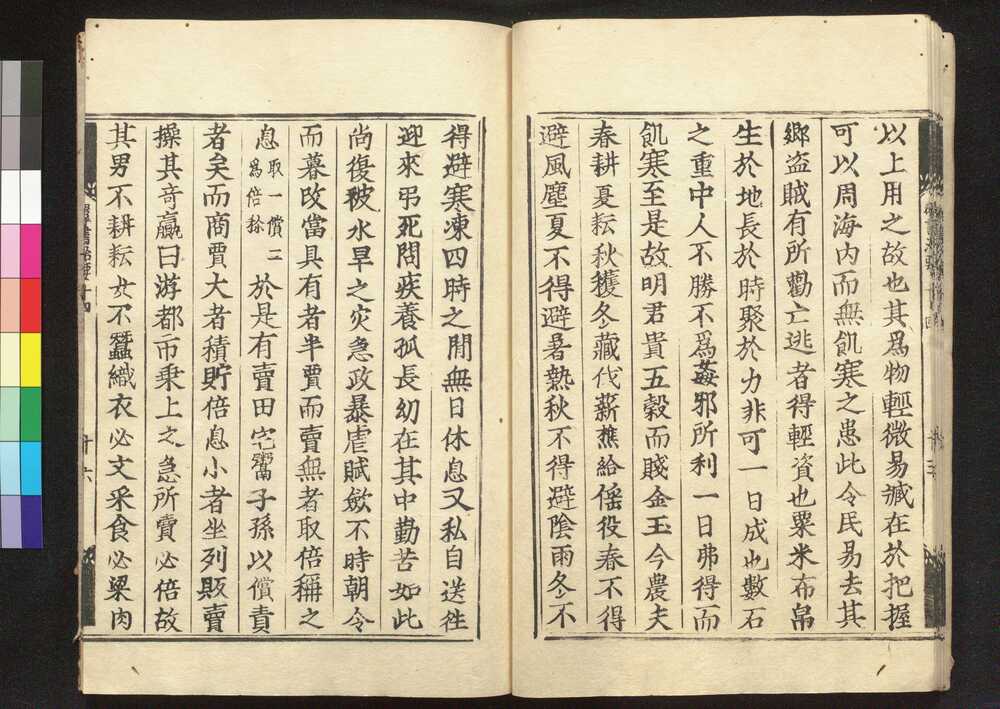 以上用之故也其爲物輕微易臧在於把握
可以周海内而無飢寒之患此令民易去其
鄉盜賊有所勸亡逃者得輕資也粟米布帛
生於地長於時聚於力非可一日成也數石
之重中人不勝不爲姦邪所利一日弗得而
飢寒至是故明君貴五穀而賤金玉今農夫
春耕夏耘秋穫冬藏伐薪樵給傜役春不得
避風塵夏不得避暑熱秋不得避陰雨冬不
得避寒凍四時之間無日休息又私自送徃
迎來弔死問疾養孤長幼在其中勤苦如此
尚復被水旱之灾急政暴虐賦斂不時朝令
而暮改當具有者半賈而賣無者取倍稱之
息取一償二爲倍稱於是有賣田宅鬻子孫以償責
者矣而商賈大者積貯倍息小者坐列販賣
操其奇贏日游都市乗上之急所賣必倍故
其男不耕耘女不蠶織衣必文采食必粱肉
群書治要十四
十六